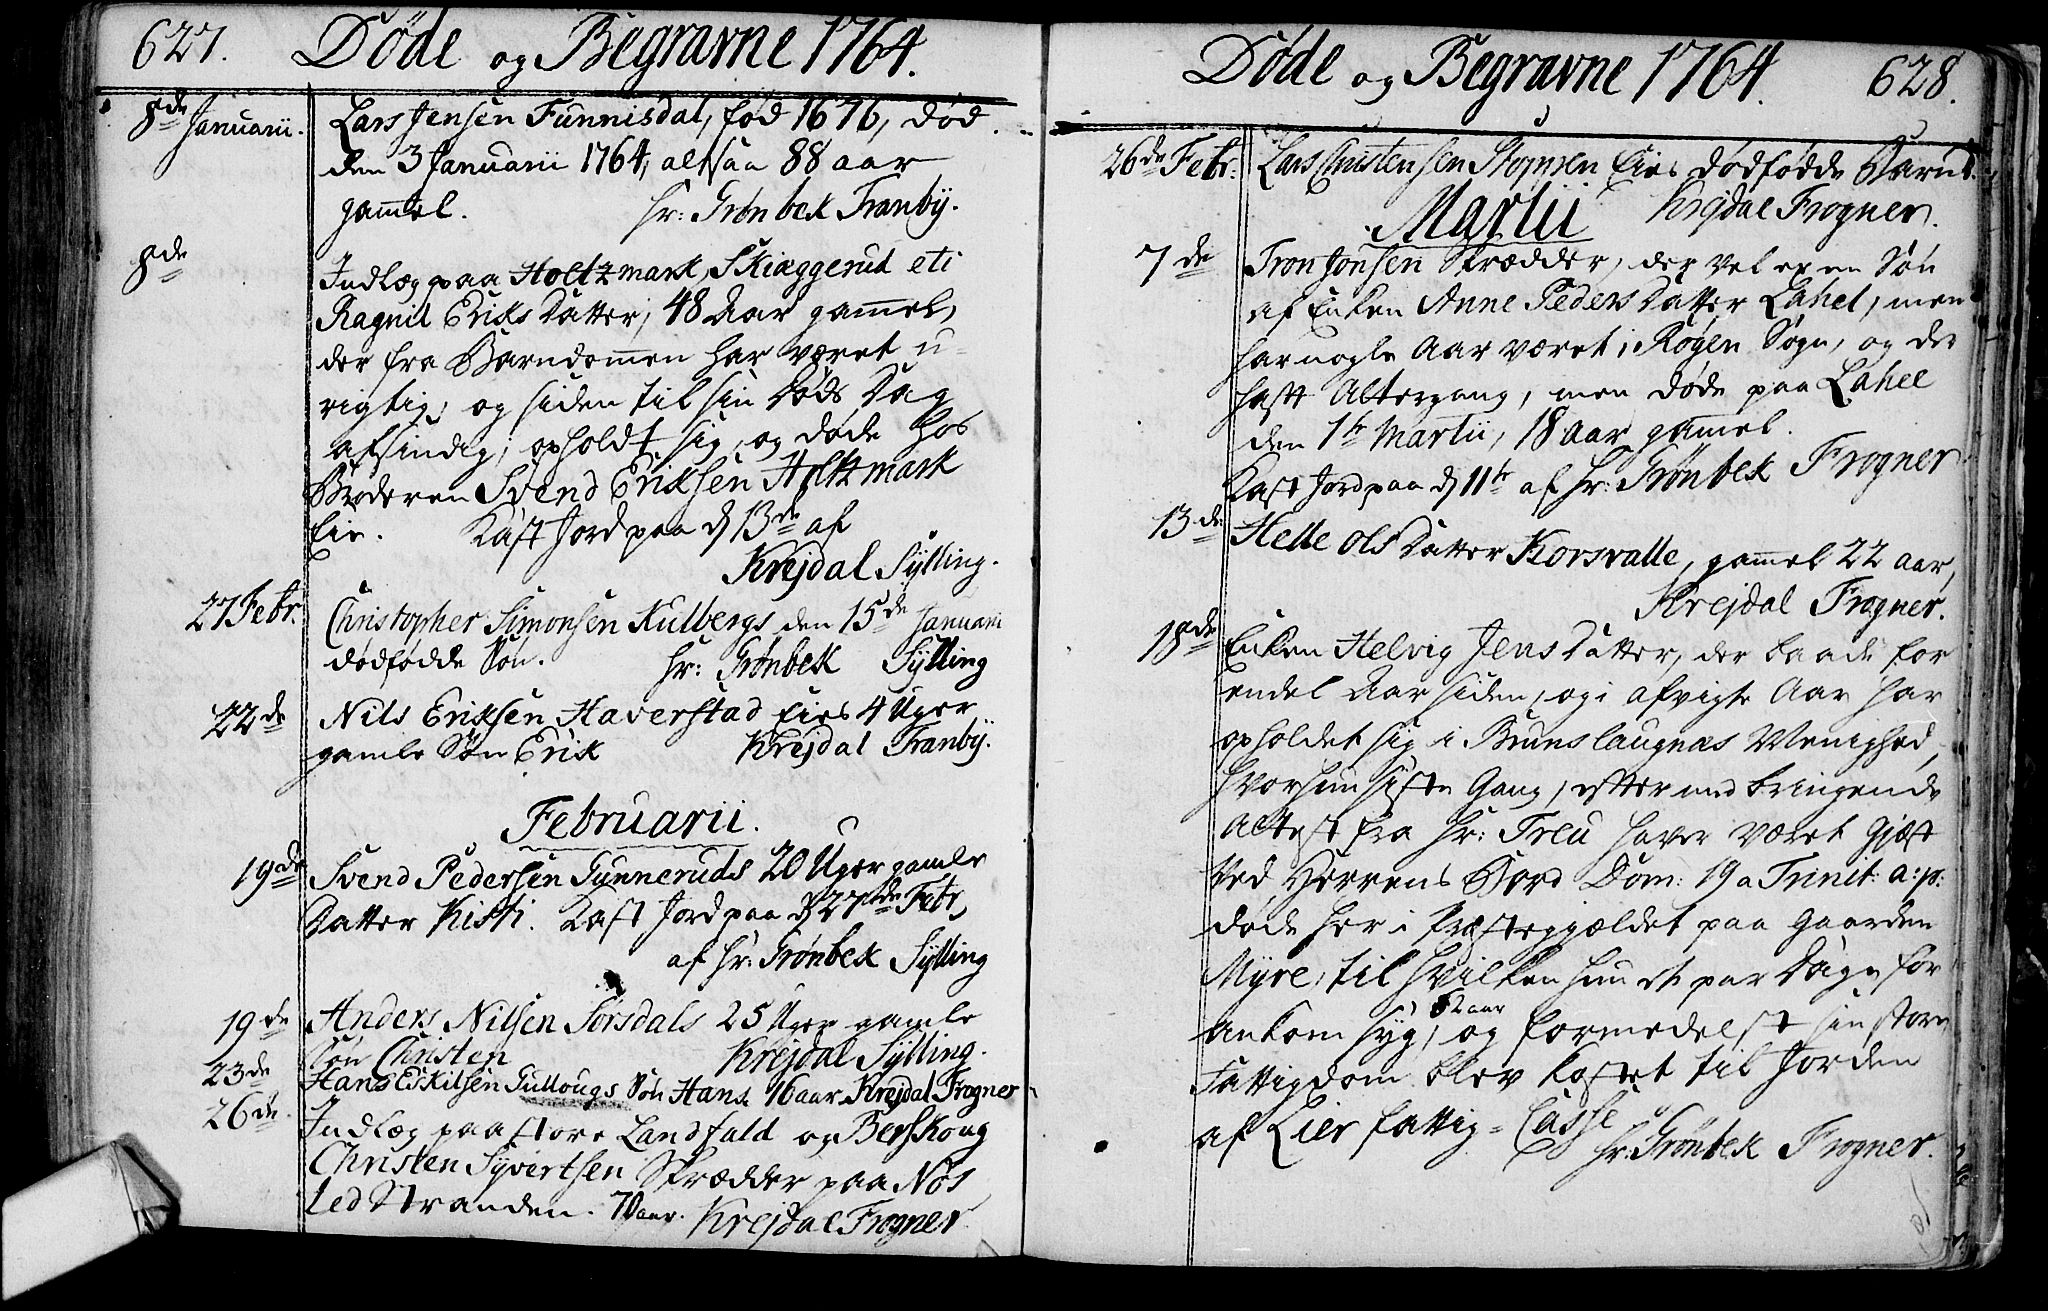 627. Døde og Begravne 1764.
8de Januarii. Lars Jensen Funnisdal, fød 1676, død
den 3 Januarii 1764, altsaa 88 aar
gamel. hr: Grønbek Tranby.
8de Indlæg paa Holtzmark, Skiæggerud eti
Ragnil Eriks Datter, 48 Aar gamel,
der fra Barndomen har været u-
rigtig, og siden til sin Døds Dag
afsindig; opholdt sig, og døde hos
Broderen Svend Eriksen Holtzmark
Eie. Kast Jord paa d 13de af
Krejdal Sylling.
27 Febr. Christopher Simonsen Kulbergs den 15de Januarii
dødfødde Søn. hr: Grønbek Sylling
22de Nils Eriksen Haverstad Eies 4 Uger
gamle Søn Erik Krejdal Tranby.
Februarii.
19de Svend Pedersen Gunneruds 20 Uger gamle
Datter Kisti. Kast Jord paa d 27de Febr,
af hr: Grønbek Sylling
19de Anders Nilsen Sørsdals 25 Uger gamle
Søn Christen Krejdal Sylling.
23de Hans Eskilsen Gullougs Søn Hans 16 aar Krejdal Frogner
26de. Indlæg paa store Landfald og Berskoug
Christen Syvertsen Skrædder paa Nøs
ledStranden. 70 aar. Krejdal Frogner
Døde og Begravne 1764. 628.
26de Febr: Lars Christensen Stoppen Eies dødfødde Barn.
Krejdal Frogner.
Martii
7de Tron Jonsen Skrædder, der vel er en Søn
af Enken Anne Peders Datter Lahel, men
har nogle Aar været i Røgen Sogn, og der
haft Altergang, men døde paa Lahel
den 1te Martii, 18 aar gamel.
Kast Jord paa d 11te af hr: Grønbek Frogner
13de Helle Ols Datter Korsvalle, gamel 22 aar,
Krejdal Frogner.
18de Enken Helvig Jens Datter, der baade for
endel Aar siden, og i afvigte Aar har
opholdet sig i Brunslaugnæs Menighed,
hvor hun sidste Gang, efter med bringende
Attest fra hr: Treu haver været Gjæst
ved Herrens Bord Dom: 19 a Trinit: a: p:
døde her i Præstegjældet paa Gaarden
Myre, til hvilken hun et par Dage før
ankom syg, 62 aar og formedelst sin store
Fattigdom blev kastet til Jorden
af Lier fattig-Casse
hr: Grønbek Frogner.